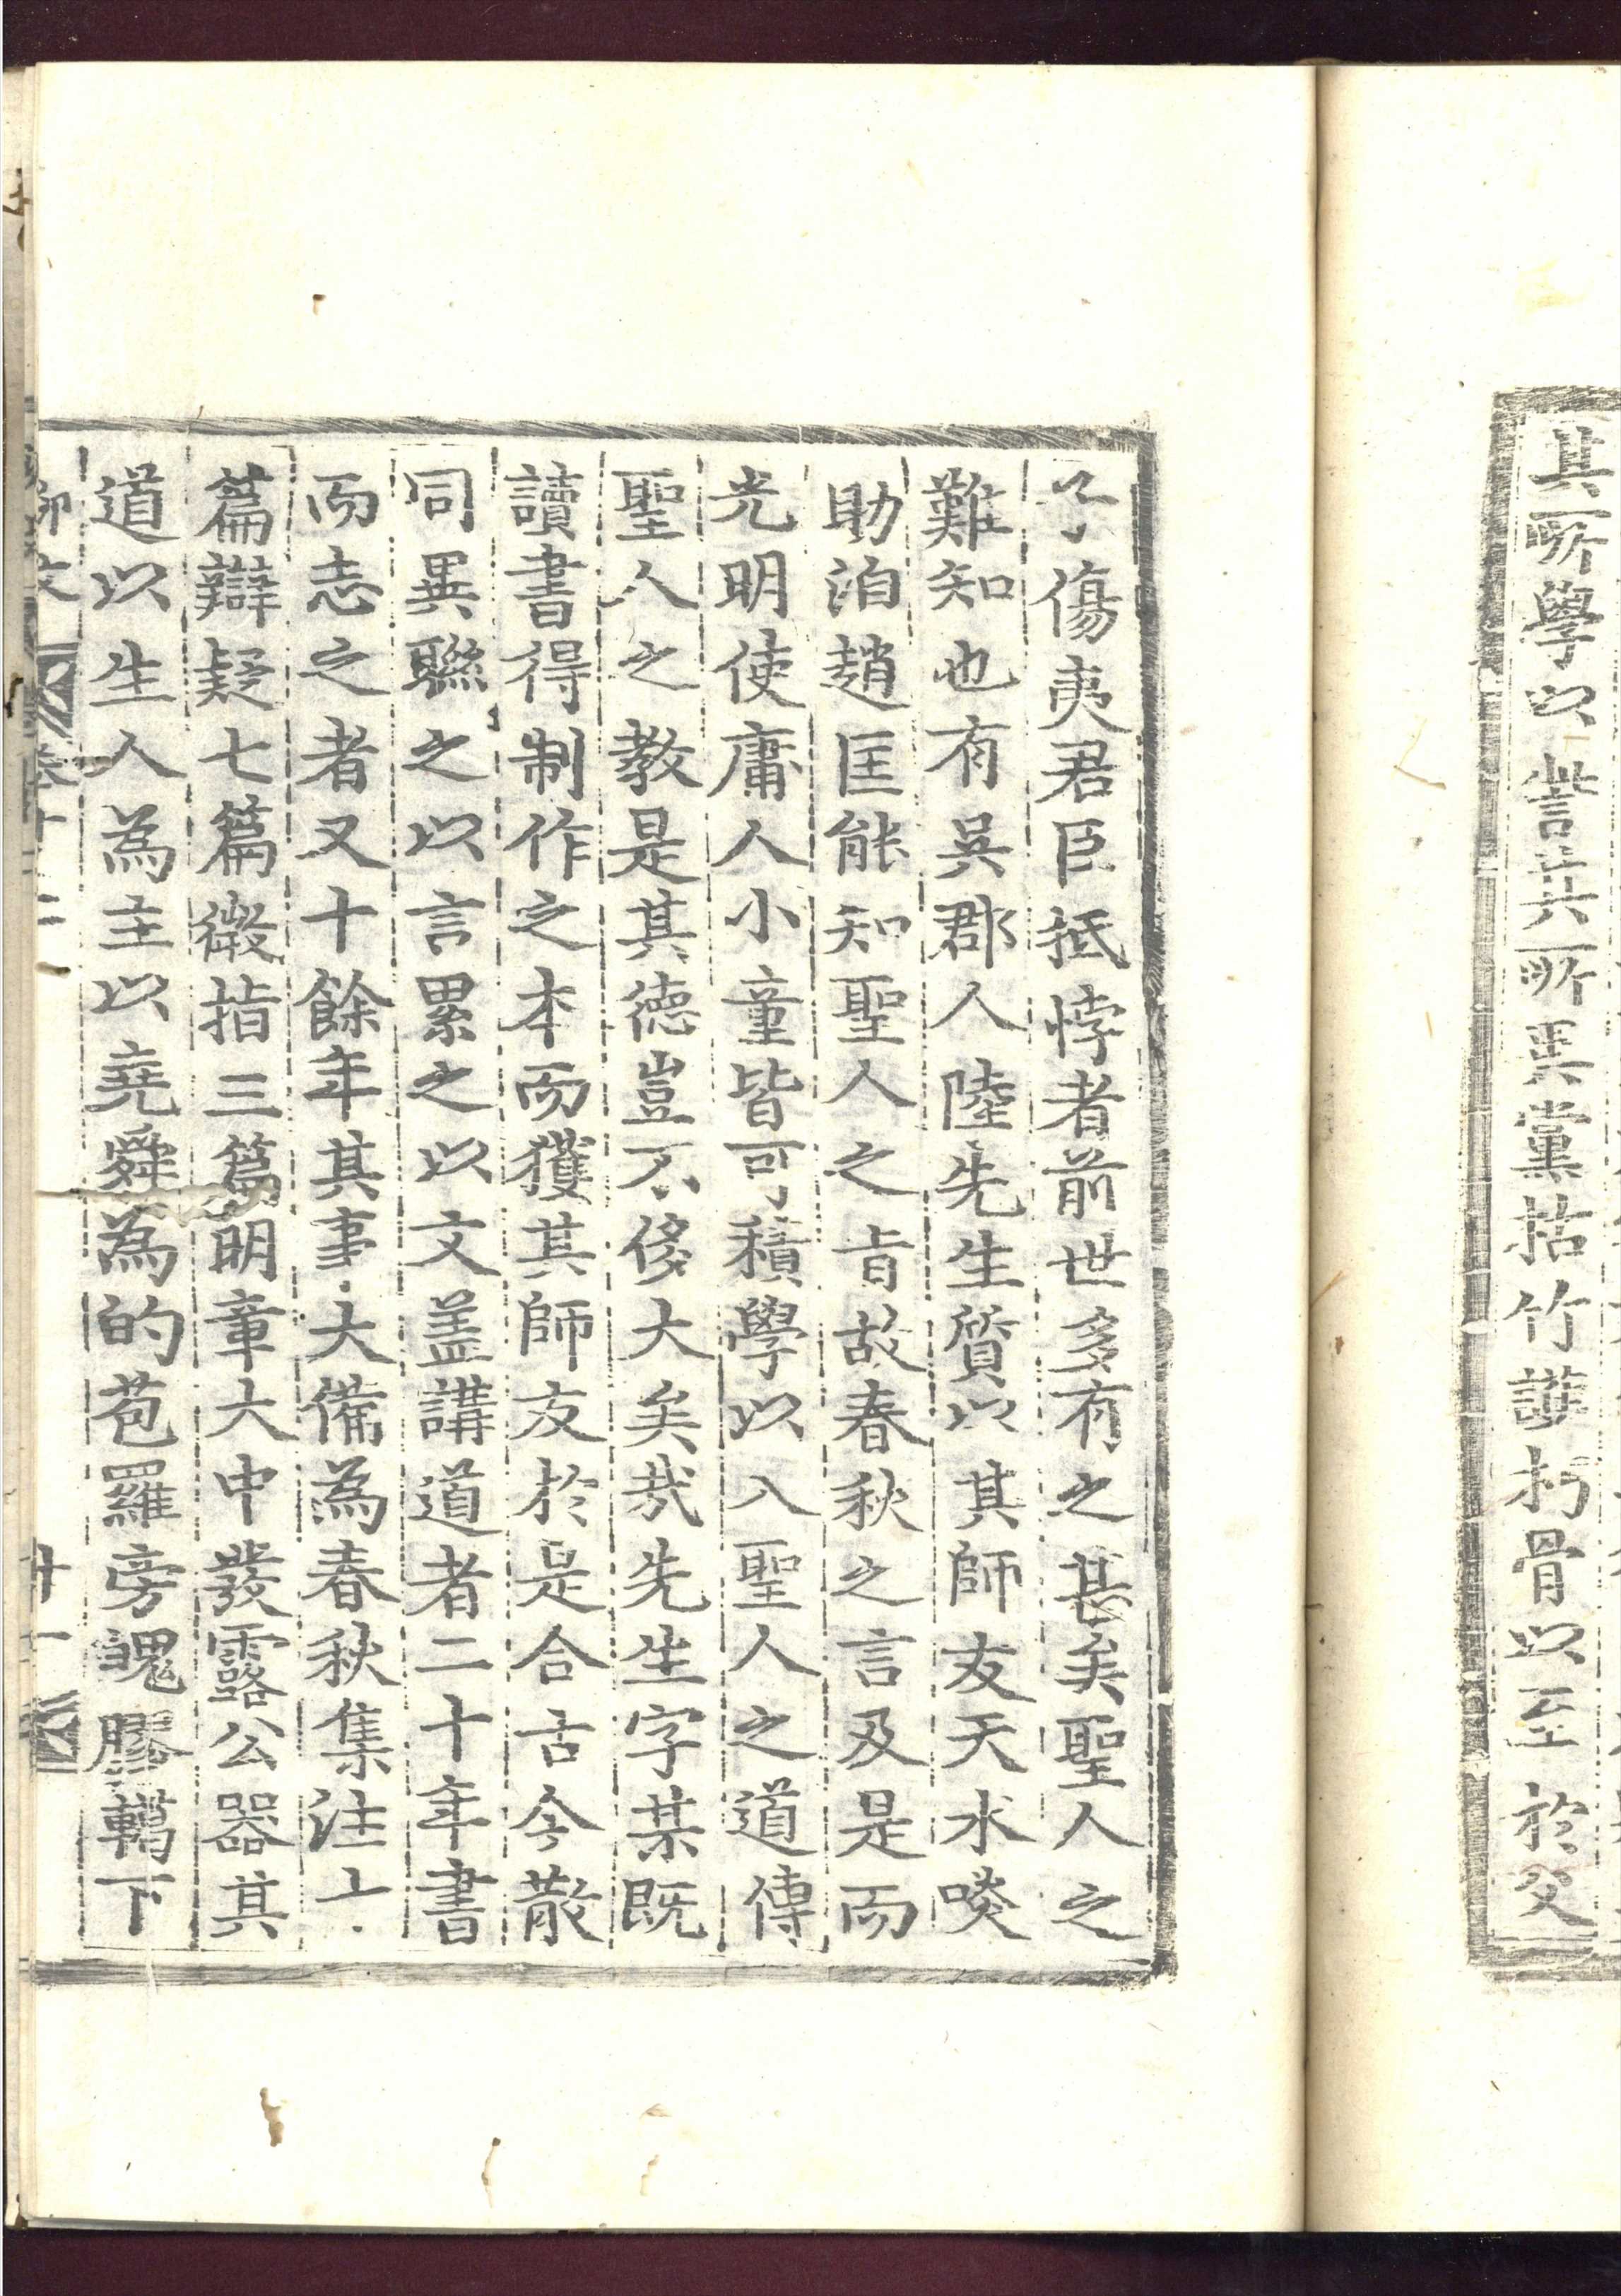 其所學以訾其所異黨枯竹護朽骨以至於父
子傷夷君臣抵悖者前世多有之甚矣聖人之
難知也有吳郡人陸先生質以其師友天水啖
助洎趙匡能知聖人之旨故春秋之言及是而
光明使庸人小童皆可積學以入聖人之道傳
聖人之教是其德豈不侈大矣哉先生字某既
讀書得制作之本而獲其師友於是合古今散
同異聯之以言累之以文盖講道者二十年書
而志之者又十餘年其事大備為春秋集注十
篇辯疑七篇微指三篇明章大中發露公器其
道以生人為主以堯舜為的苞羅旁魄膠轕下
卄一